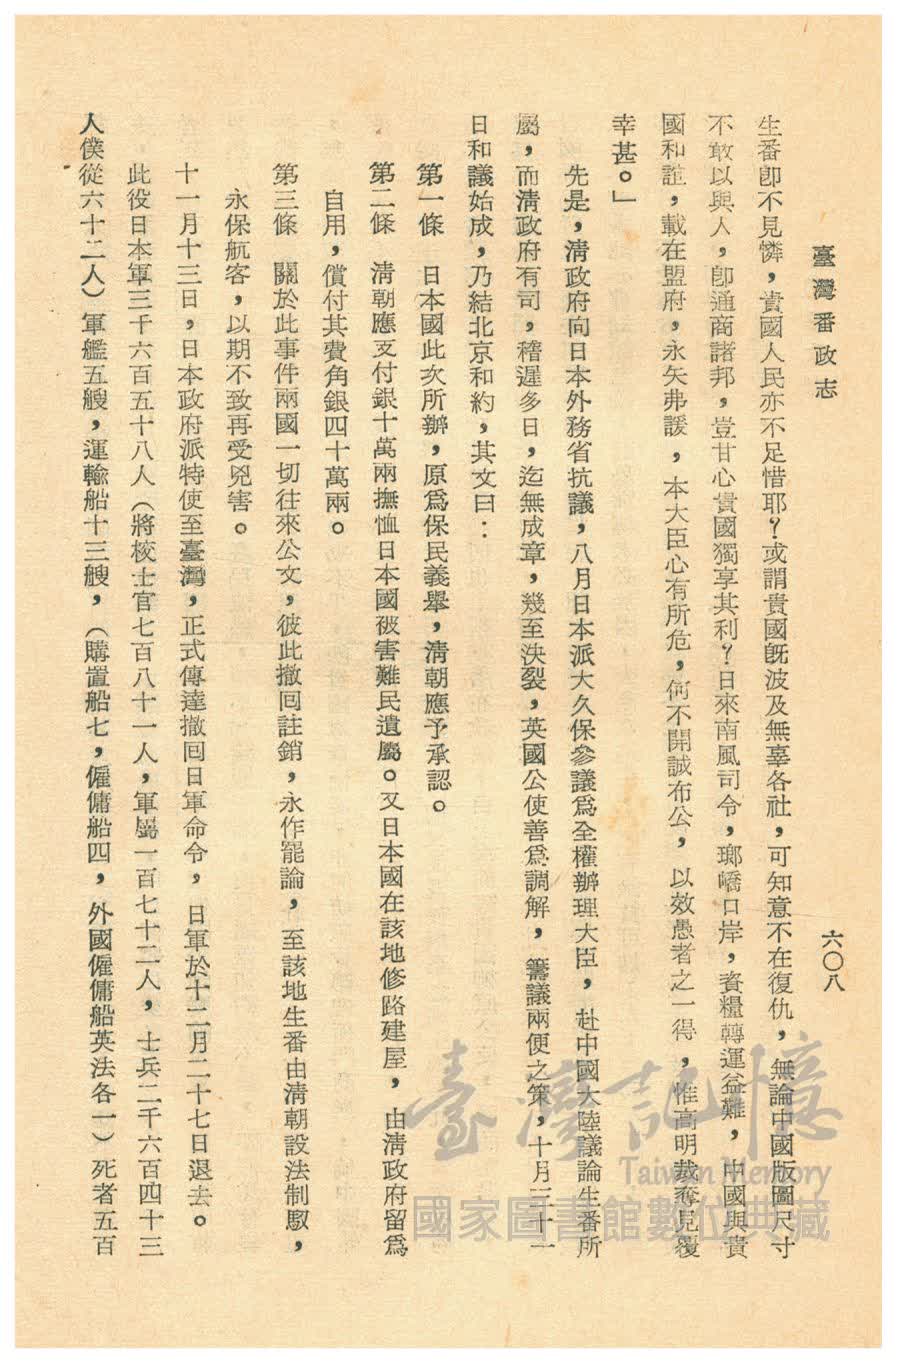 臺灣番政志
六〇八
生番卽不見憐，貴國人民亦不足惜耶？或謂貴國旣波及無辜各社，可知意不在復仇，無論中國版圖尺寸
不敢以與人，卽通商諸邦，豈甘心貴國獨享其利？日來南風司令，瑯嶠口岸，資糧轉運益難，中國與貴
國和誼，載在盟府，永矢弗諼，本大臣心有所危，何不開誠布公，以效愚者之一得，惟高明裁奪見覆
幸甚。」
先是，淸政府向日本外務省抗議，八月日本派大久保參議爲全權辦理大臣，赴中國大陸議論生番所
屬，而淸政府有司，稽遲多日，迄無成章，幾至決裂，英國公使善爲調解，籌議兩便之策，十月三十一
日和議始成，乃結北京和約，其文曰：
第一條　日本國此次所辦，原爲保民義舉，淸朝應予承認。
第二條　淸朝應支付銀十萬兩撫恤日本國被害難民遺屬。又日本國在該地修路建屋，由淸政府留爲
自用，償付其費角銀四十萬兩。
第三條　關於此事件兩國一切往來公文，彼此撤回註銷，永作罷論，至該地生番由淸朝設法制馭，
永保航客，以期不致再受兇害。
十一月十三日，日本政府派特使至臺灣，正式傳達撤回日軍命令，日軍於十二月二十七日退去。
此役日本軍三千六百五十八人（將校士官七百八十一人，軍屬一百七十二人，士兵二千六百四十三
人僕從六十二人）軍艦五艘，運輸船十三艘，（購置船七，僱傭船四，外國僱傭船英法各一）死者五百
臺灣記憶
Taiwan Memory
國家圖書館數位典藏